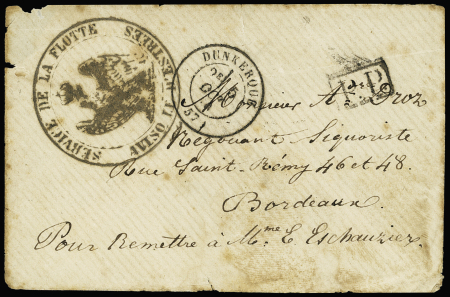 SERVICE DE LA FLOTTE
DUNKERQUE
(57)
P.D.
Monsieur A. Droz
Négociant Liquoriste
Rue Saint-Rémy 46 et 48.
Bordeaux.
Pour Remettre à Mme E. Eschauzier